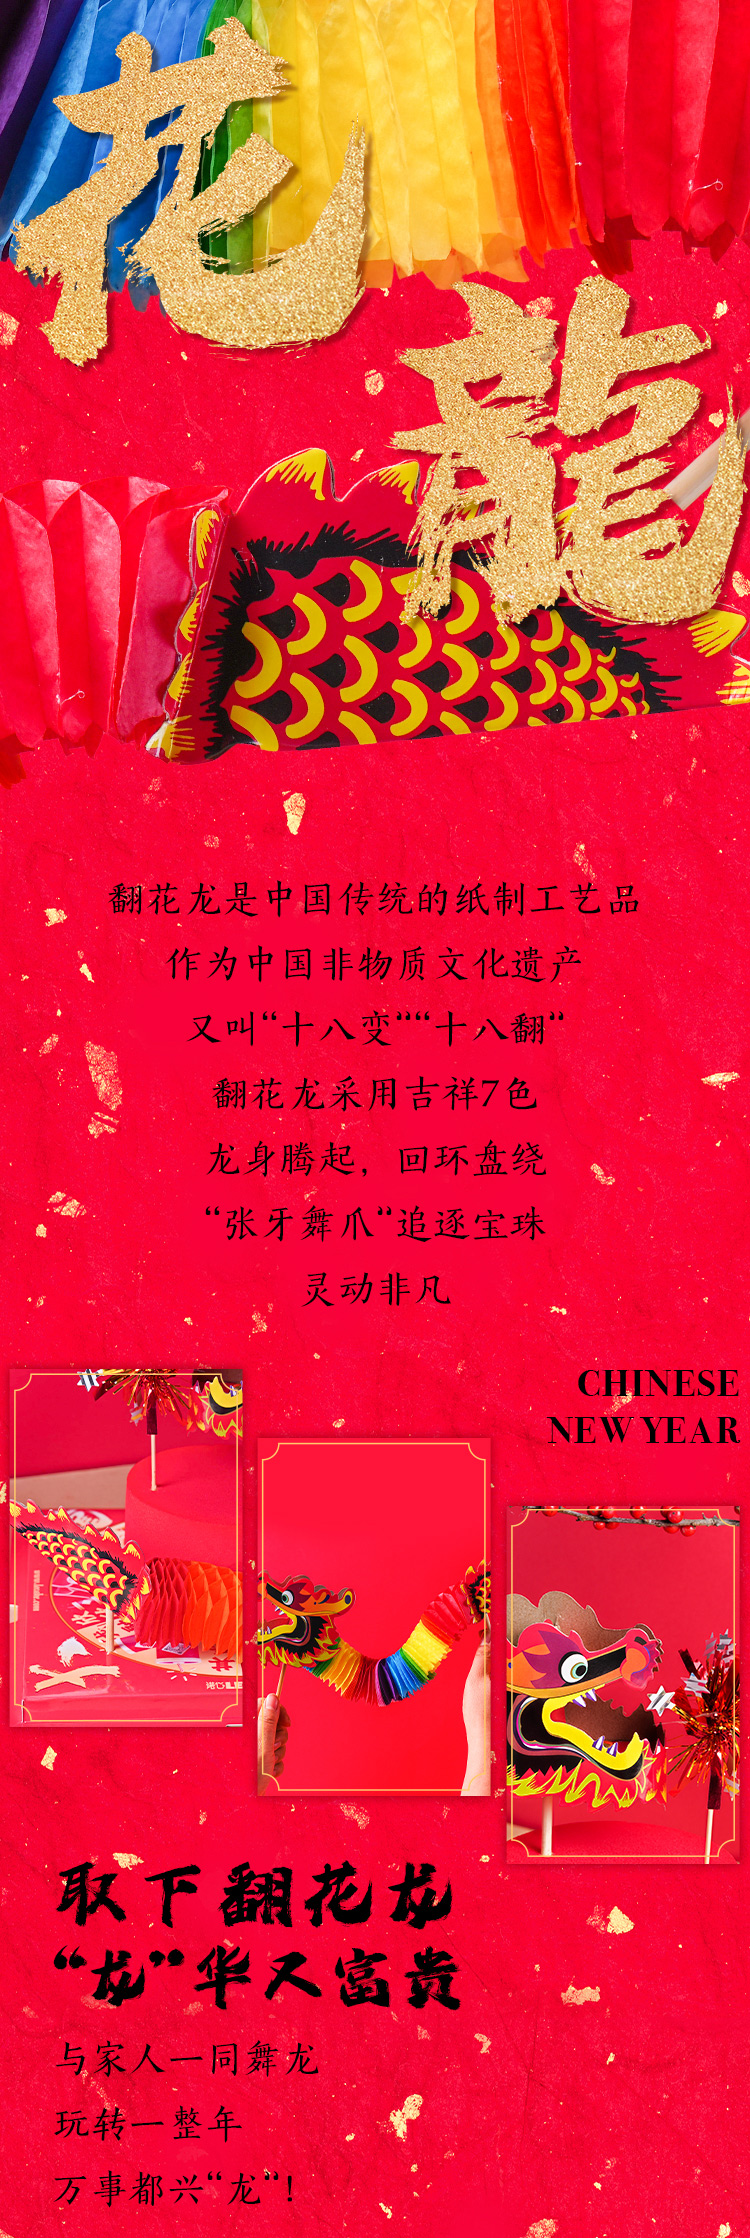 花
龍
翻花龙是中国传统的纸制工艺品
作为中国非物质文化遗产
又叫“十八变”“十八翻”
翻花龙采用吉祥7色
龙身腾起，回环盘绕
“张牙舞爪”追逐宝珠
灵动非凡
CHINESE
NEW YEAR
取下翻花龙
“龙”华又富贵
与家人一同舞龙
玩转一整年
万事都兴“龙”！